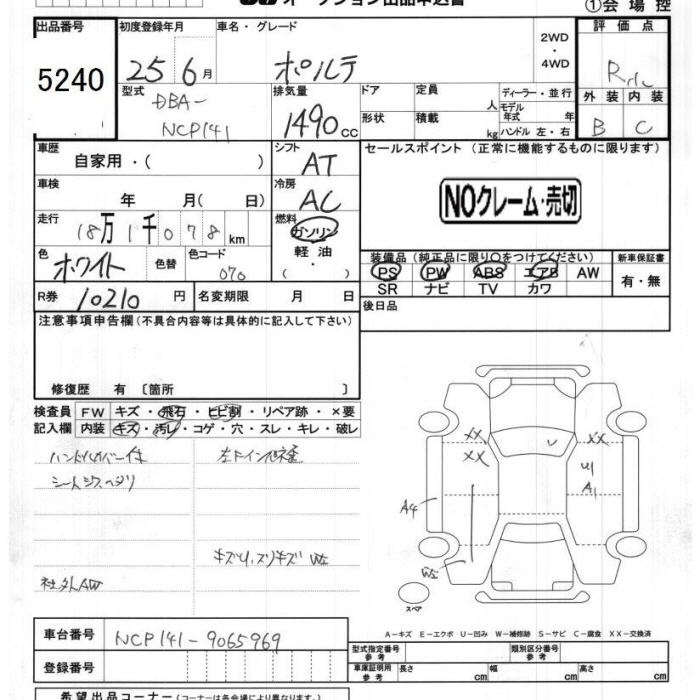 オークション出品申込書
①会場控
出品番号
5240
初度登録年月
25 6月
車名・グレード
ポルテ
2WD
・
4WD
評価点
R
型式
DBA-
NCP141
排気量
1490cc
ドア
定員
人
ディーラー・並行
モデル年式 年
形状
積載
kg
ハンドル 左・右
外装 内装
B C
車歴
自家用・( )
シフト
AT
セールスポイント (正常に機能するものに限ります)
NOクレーム・売切
車検
年 月( 日)
冷房
AC
走行
18万1千078km
燃料
ガソリン
軽油
( ・ )
色
ホワイト
色替
色コード
070
装備品 (純正品に限り○をつけてください)
新車保証書
PS PW ABS エアB AW
SR ナビ TV カワ
有・無
R券
10210円
名変期限 月 日
後日品
注意事項申告欄 (不具合内容等は具体的に記入して下さい)
修復歴 有 〔箇所 〕
検査員
記入欄
FW キズ・飛石・ヒビ割・リペア跡・×要
内装 キズ・汚レ・コゲ・穴・スレ・キレ・破レ
キズU,スリキズ W2
社外AW
XX XX
XX
U
U1
A1
A4
W2
スペア
A-キズ E-エクボ U-凹み W-補修跡 S-サビ C-腐食 XX-交換済
車台番号
NCP141-9065969
登録番号
型式指定番号
参考
類別区分番号
参考
車庫証明用
参考
長さ cm
幅 cm
高さ cm
希望出品コーナー (コーナーは各会場により異なります)